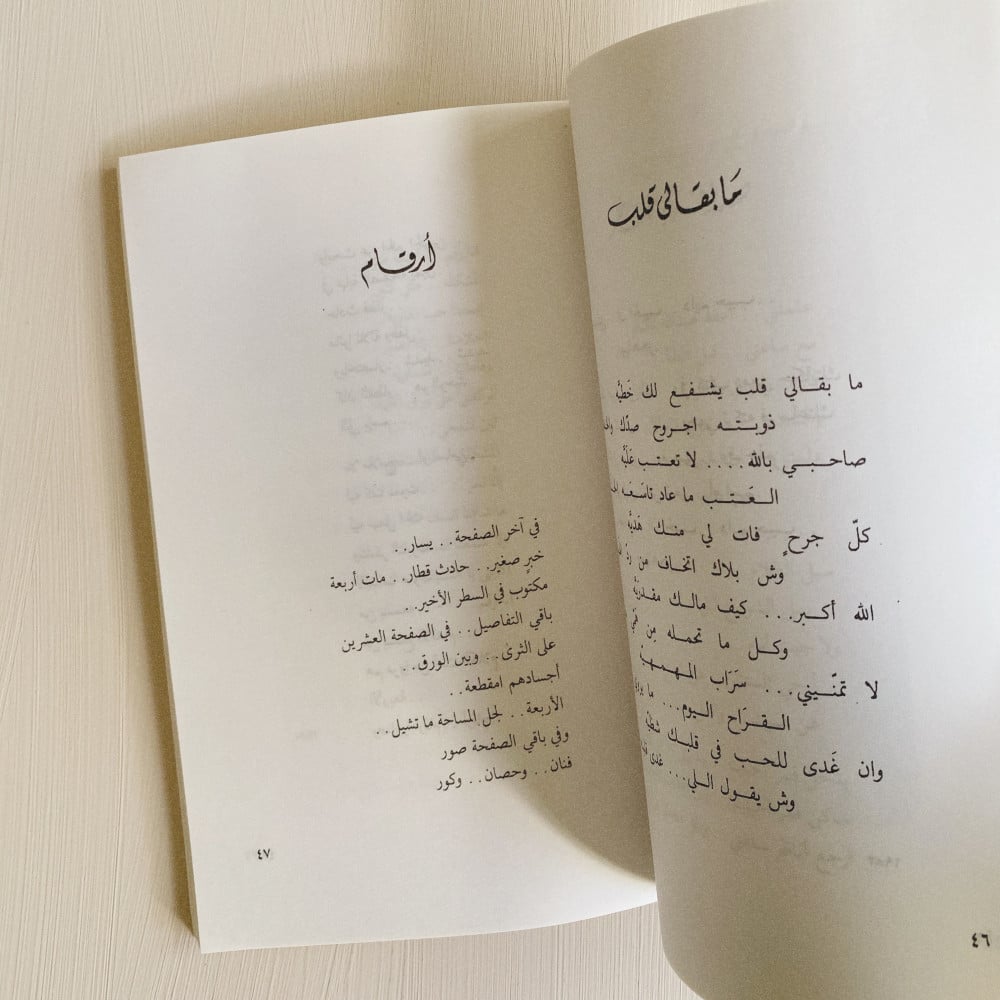 مَا بقالي قلب
ما بقالي قلب يشفع لك خَطيّه
ذوبته اجروح صدّك
صاحبي بالله.... لا تعتب عَلَيّه
العَتب ما عاد تاسَعه
كلّ جرحٍ فات لي منك هَديّه
وش بلاك اتخاف من
الله أكبر... كيف مالك مقدريّه
وكل ما تحمله مِن
لا تمنّيني... سَرَاب المهمهيّة
القرَاح اليوم... ما
وان غَدى للحب في قلبك شظيّه
وش يقول اللي... غدى
٤٦
أرقام
في آخر الصفحة.. يسار..
خبرٍ صغير.. حادث قطار.. مات أربعة
مكتوب في السطر الأخير..
باقي التفاصيل.. في الصفحة العشرين
على الثرى.. وبين الورق..
أجسادهم امقطعة..
الأربعة.. لجل المساحة ما تشيل..
وفي باقي الصفحة صور
فنان.. وحصان.. وكور
٤٧